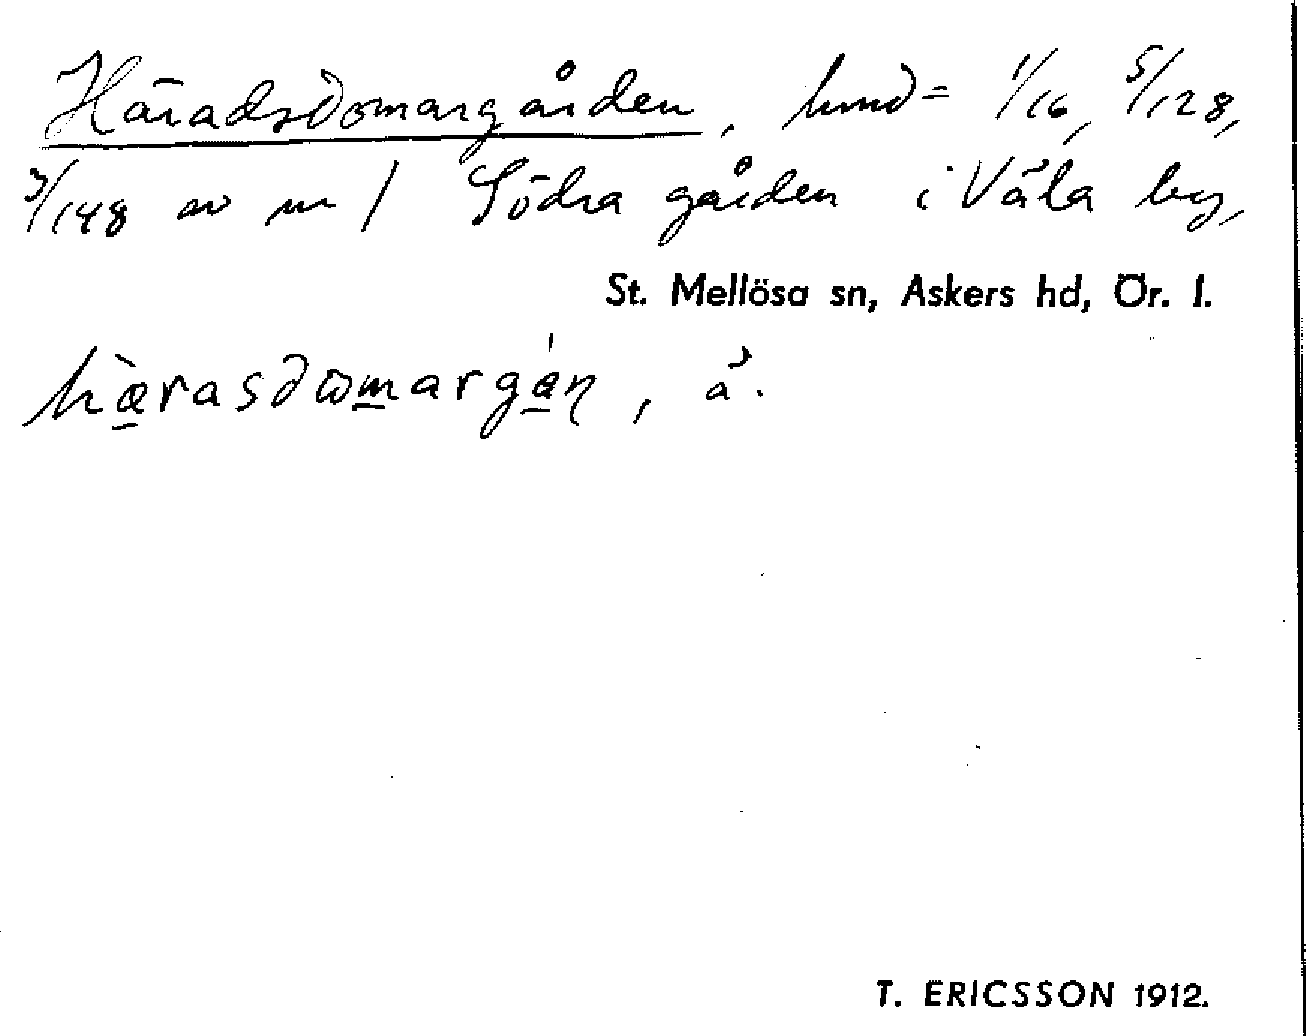 Häradsdomargården, hmd= 1/16, 5/128,
3/148 av nr 1 Södra gården i Våla by,
St. Mellösa sn, Askers hd, Ör. l.
hæ̀rasdωmargán, å.
T. ERICSSON 1912.